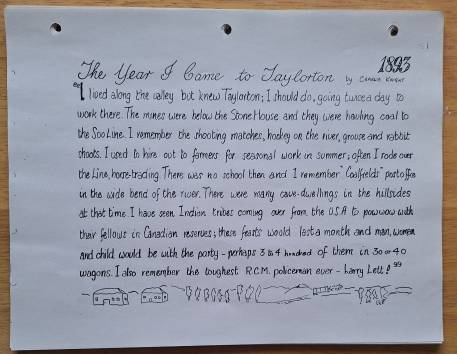 The Year I Came to Taylorton by Charlie Knight 1893
"I lived along the valley but knew Taylorton; I should do, going twice a day to
work there. The mines were below the Stone House and they were hauling coal to
the Soo Line. I remember the shooting matches, hockey on the river, grouse and rabbit
shoots. I used to hire out to farmers for seasonal work in summer; often I rode over
the Line, horse-trading. There was no school then and I remember "Coalfields" post office
in the wide bend of the river. There were many cave-dwellings in the hillsides
at that time. I have seen Indian tribes coming over from the U.S.A to powwow with
their fellows in Canadian reserves; these feasts would last a month and man, women
and child would be with the party - perhaps 3 to 4 hundred of them in 30 or 40
wagons. I also remember the toughest R.C.M. policeman ever - Larry Lett!"